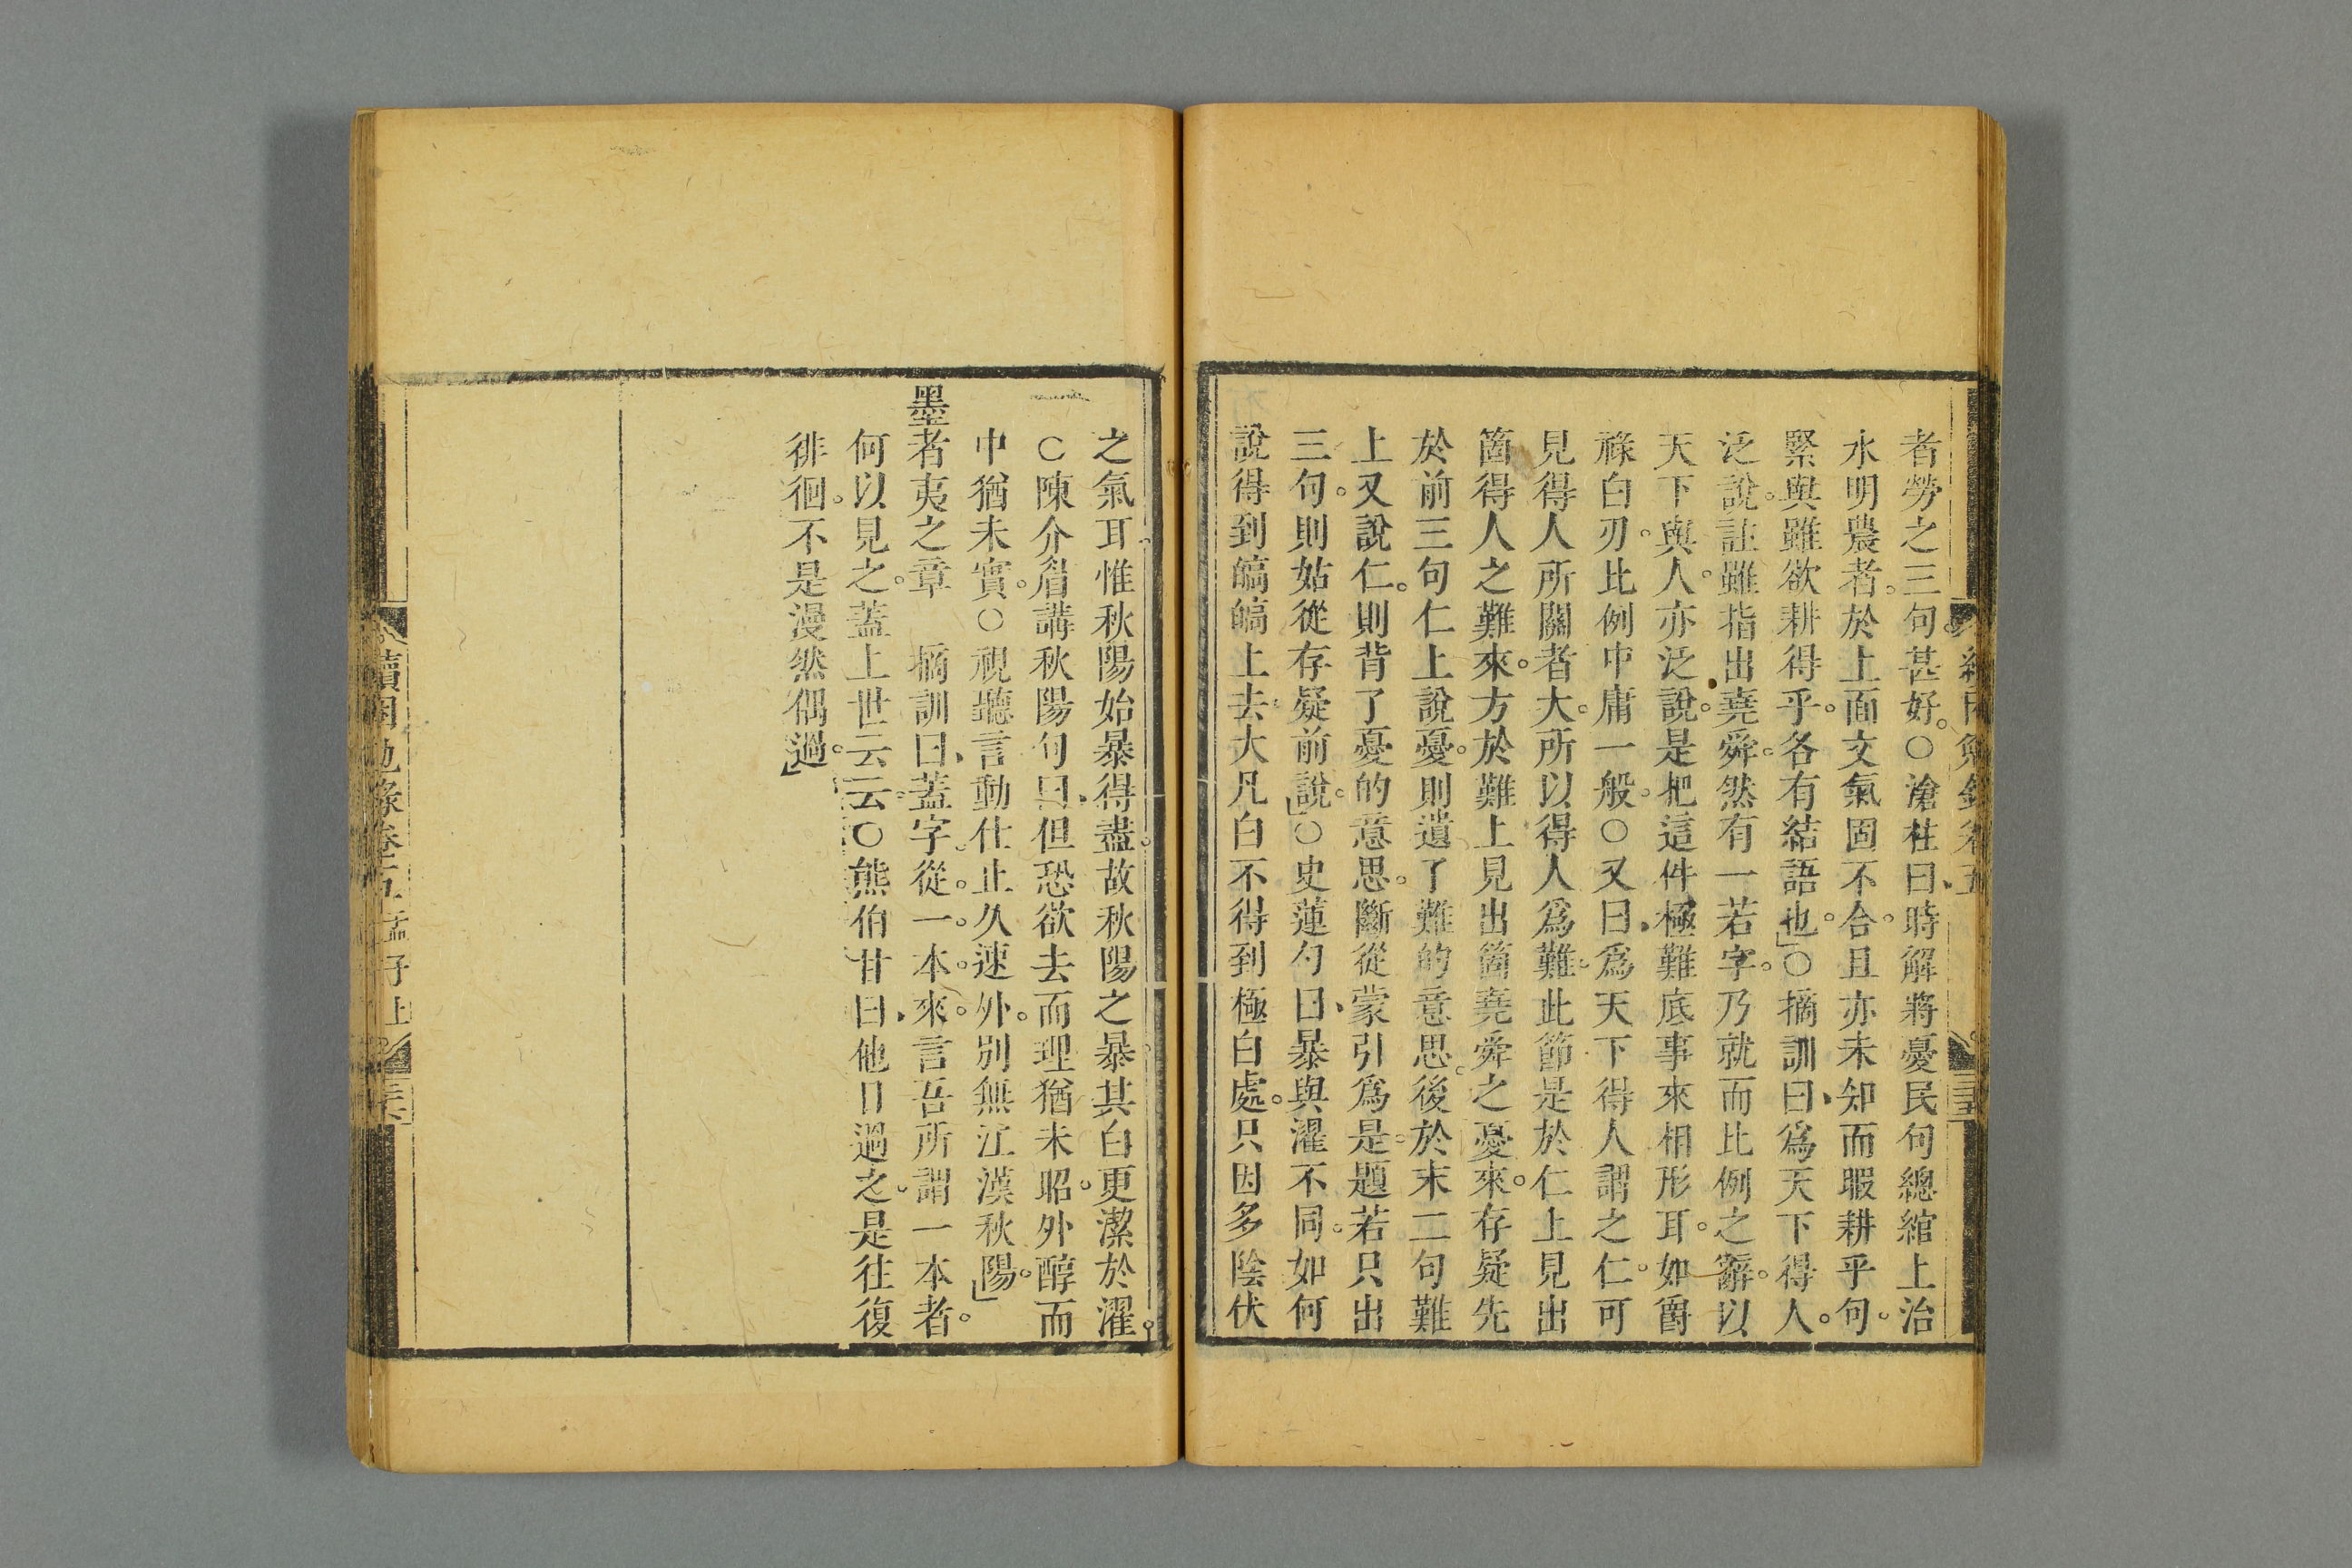 者勞之三句甚好○滄柱曰時解將憂民句總綰上治
水明農者於上面文氣固不合且亦未知而暇耕乎句
緊與雖欲耕得乎各有結語也○摘訓曰爲天下得人
泛說註雖指出堯舜然有一若字乃就而比例之辭以
天下與人亦泛說是把這件極難底事來相形耳如爵
祿白刃比例中庸一般○又曰爲天下得人謂之仁可
見得人所關者大所以得人爲難此節是於仁上見出
箇得人之難來方於難上見出箇堯舜之憂來存疑先
於前三句仁上說憂則遺了難的意思後於末二句難
上又說仁則背了憂的意思斷從蒙引爲是題若只出
三句則姑從存疑前說○史蓮勺曰暴與濯不同如何
說得到皜皜上去大凡白不得到極白處只因多陰伏
之氣耳惟秋陽始暴得盡故秋陽之暴其白更潔於濯
○陳介眉講秋陽句曰但恐欲去而理猶未昭外醇而
中猶未實○視聽言動仕止久速外別無江漢秋陽
墨者夷之章　摘訓曰蓋字從一本來言吾所謂一本者
何以見之蓋上世云云○熊伯甘曰他日過之是往復
徘徊不是漫然偶過
續困勉錄卷五 孟子上